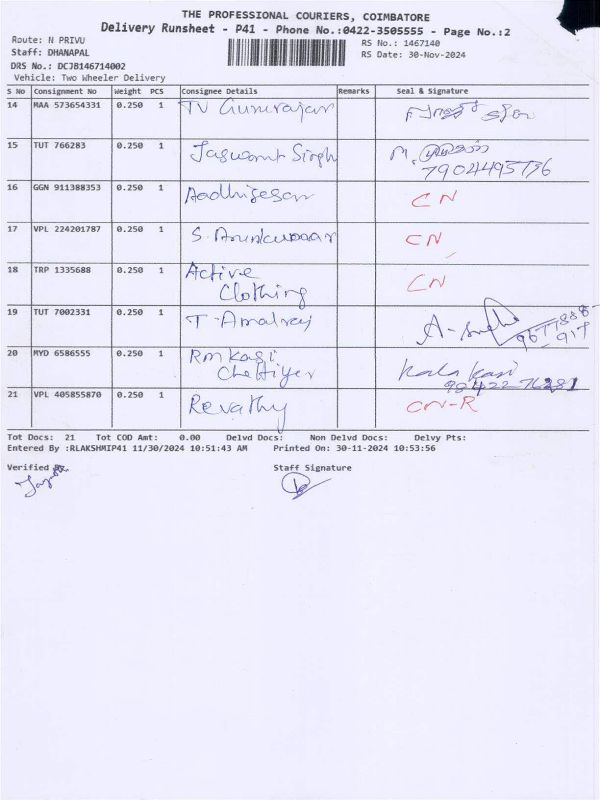 THE PROFESSIONAL COURIERS, COIMBATORE
Delivery Runsheet - P41 - Phone No.:0422-3505555 - Page No.:2
Route: N PRIVU
RS No.: 1467140
Staff: DHANAPAL
RS Date: 30-Nov-2024
DRS No.: DCJB146714002
Vehicle: Two Wheeler Delivery
S No Consignment No Weight PCS Consignee Details Remarks Seal & Signature
14 MAA 573654331 0.250 1 TV Gururajan
15 TUT 766283 0.250 1 Jaswant Singh M.
16 GGN 911388353 0.250 1 Aadhigesan CN
17 VPL 224201787 0.250 1 S. Arunkumaar CN
18 TRP 1335688 0.250 1 Active CN
Clothing
19 TUT 7002331 0.250 1 T. Amalraj
20 MYD 6586555 0.250 1 RM Kasi Kala Kasi
Chettiyer
21 VPL 405855870 0.250 1 Revathy
Tot Docs: 21 Tot COD Amt: 0.00 Delvd Docs: Non Delvd Docs: Delvy Pts:
Entered By :RLAKSHMIP41 11/30/2024 10:51:43 AM Printed On: 30-11-2024 10:53:56
Verified By Staff Signature